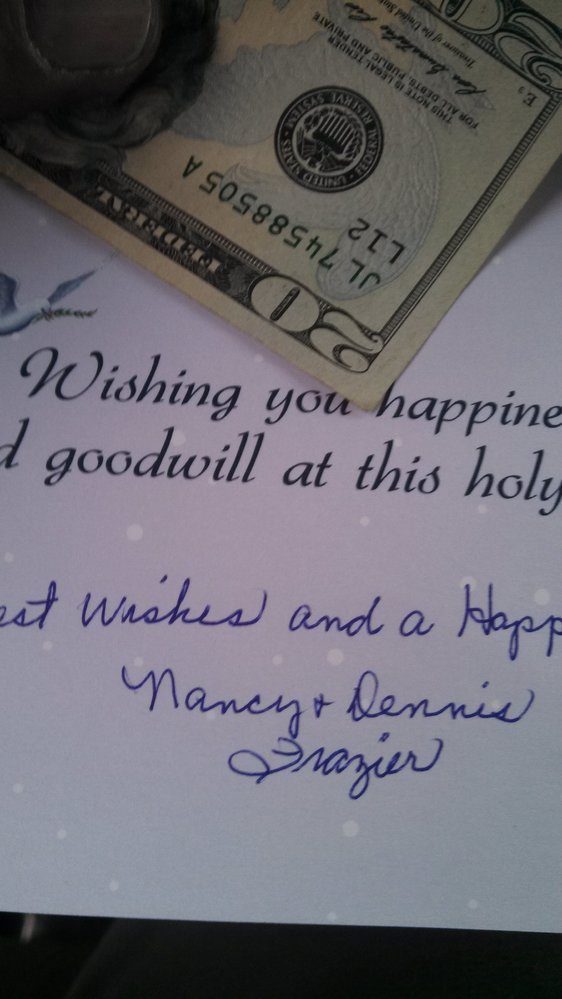 THIS NOTE IS LEGAL TENDER
FOR ALL DEBTS, PUBLIC AND PRIVATE
Treasurer of the United States
20
UNITED STATES FEDERAL RESERVE SYSTEM
JL 74588505 A
L12
FEDERAL
20
Wishing you happine
d goodwill at this holy
est Wishes and a Happ
Nancy + Dennis
Frazier